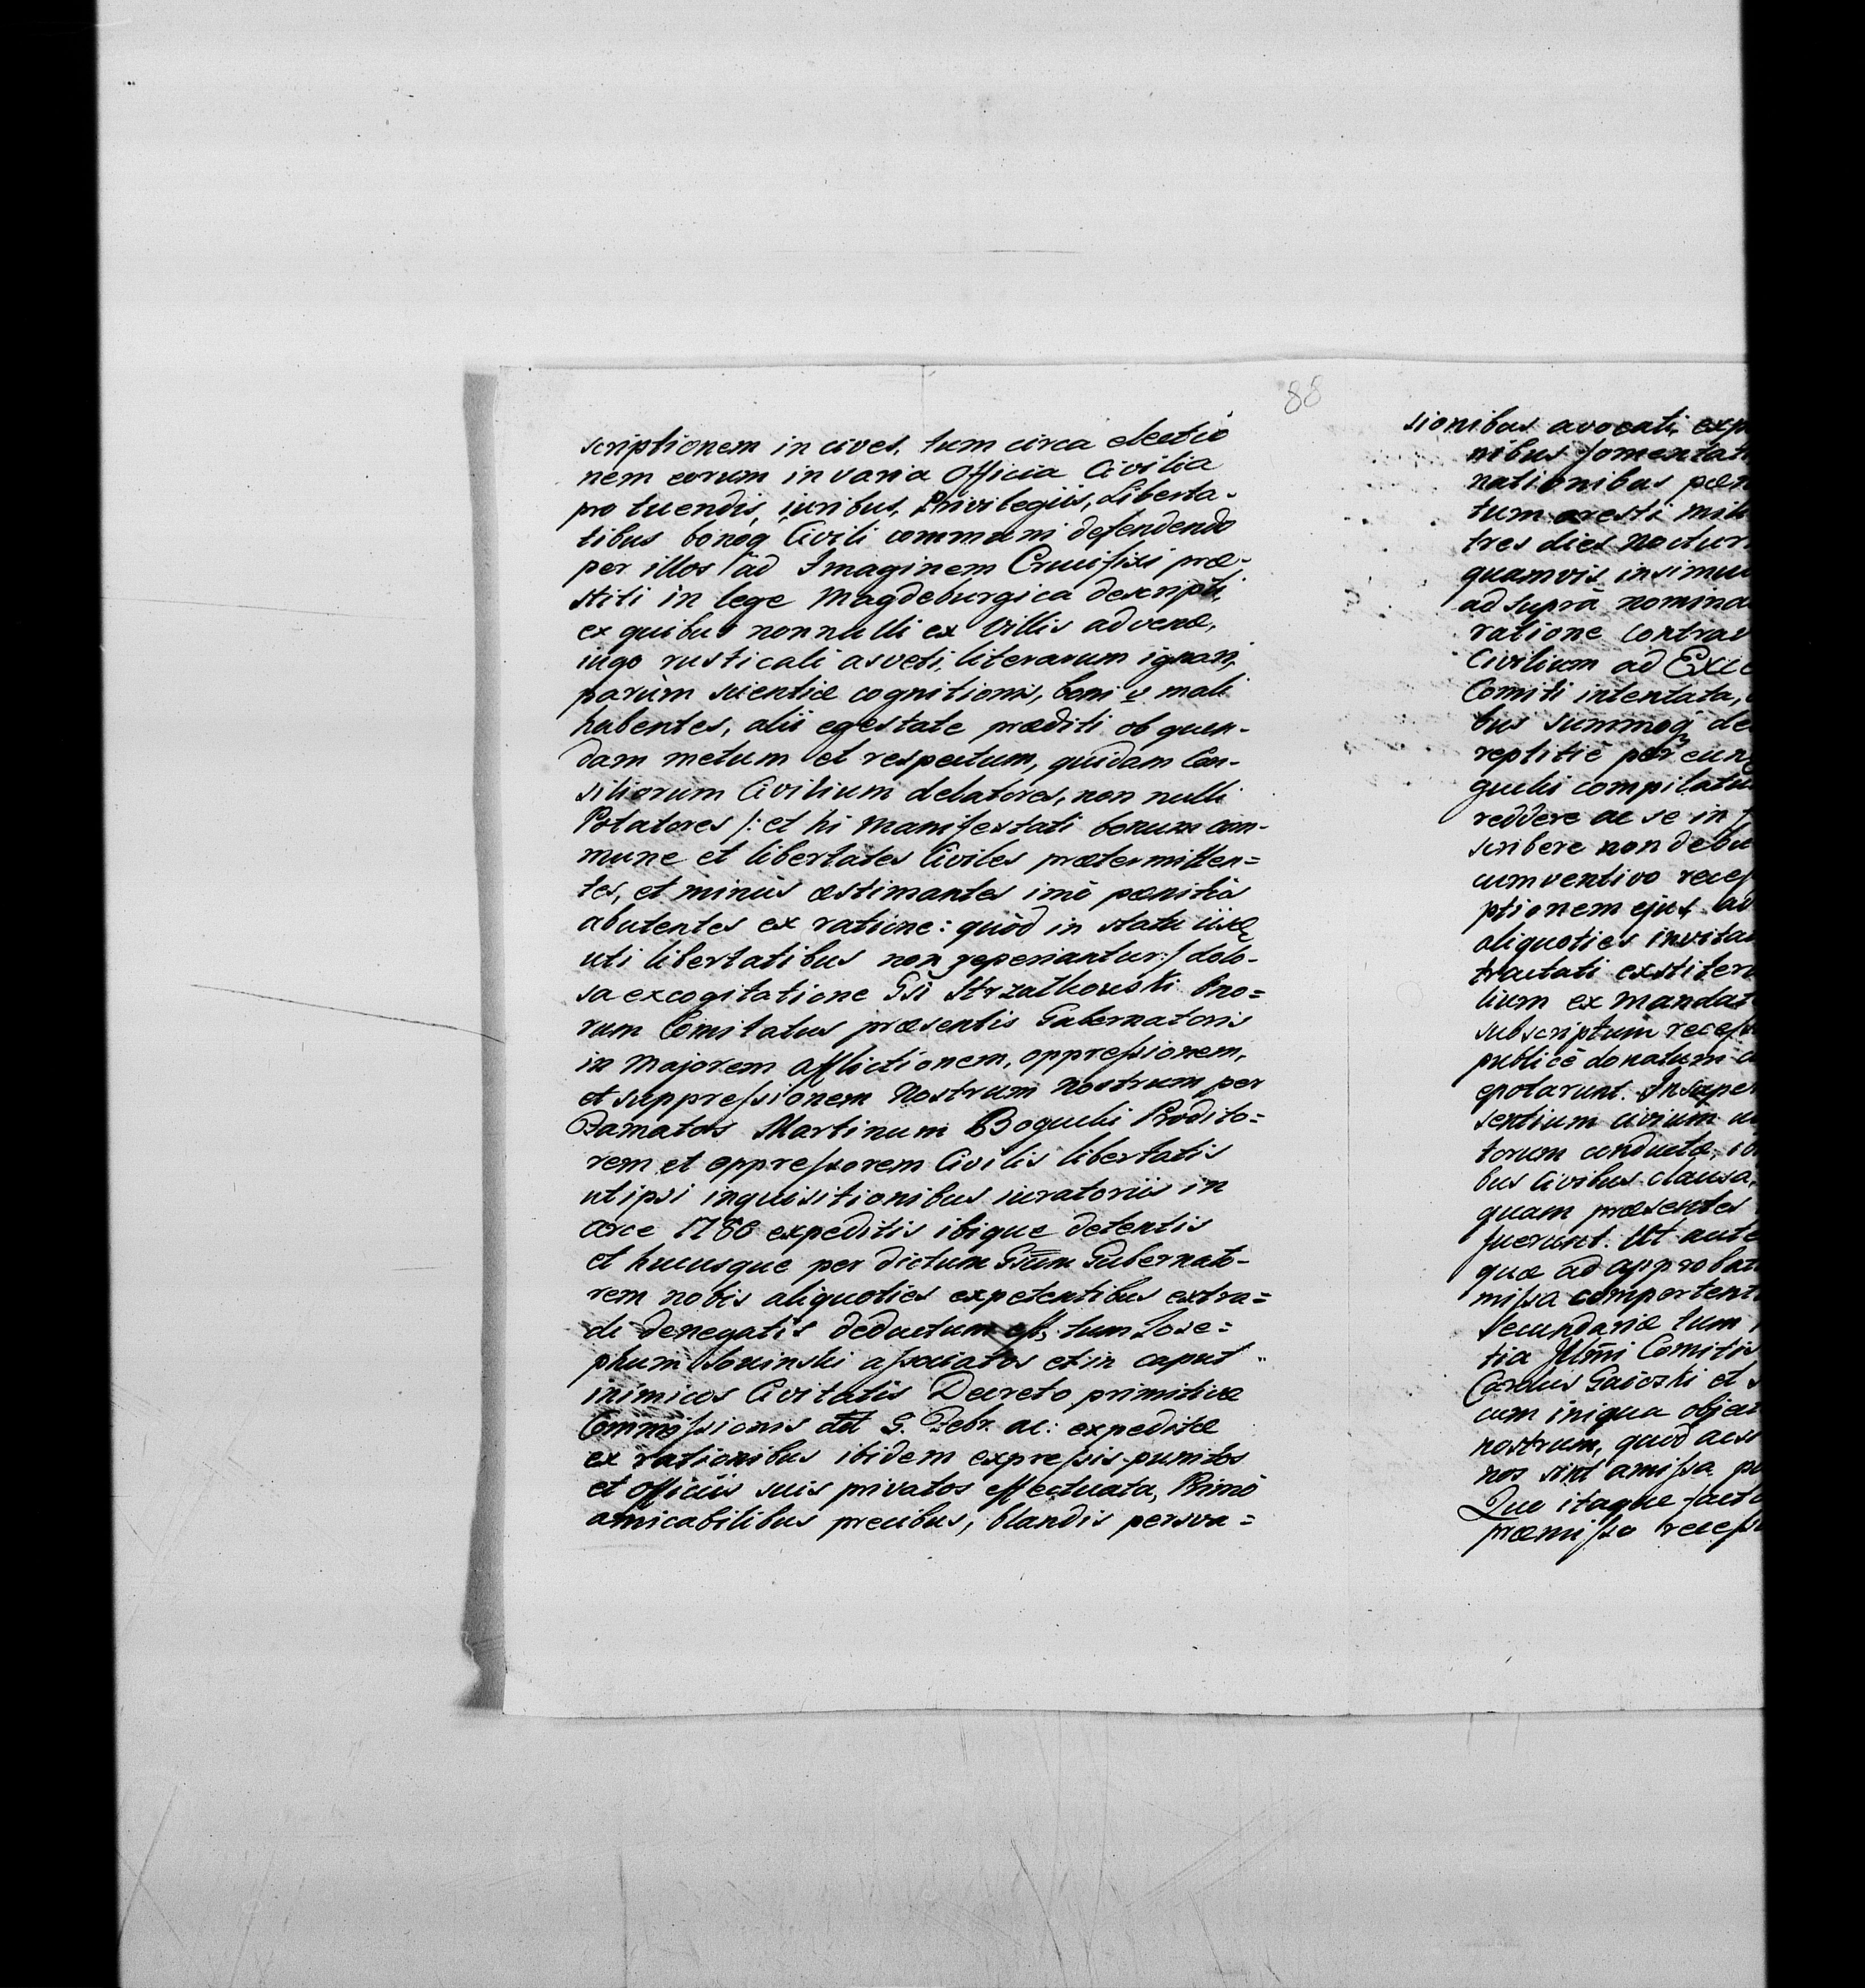 88
scriptionem in cives, tum circa electio
nem eorum in varia Officia Civilia
pro tuendis iuribus, Privilegiis, Liberta-
tibus bonoq Civili communi defendendo
per illos ad Imaginem Crucifixi præ-
stiti in lege Magdeburgica descripti,
ex quibus nonnulli ex Villis advenæ,
iugo rusticali asveti, literarum ignari,
parùm scientiæ cognitionis, boni & mali
habentes, alii egestate præditi ob quen-
dam metum et respectum, quidam Con-
siliorum Civilium delatores, non nulli
Potatores /: et hi manifestati bonum com-
mune et libertates Civiles prætermitten=
tes, et minùs æstimantes imò pœnitùs
abutentes ex ratione: quòd in statu iisq
uti libertatibus non reperiantur :/ dolo-
sa excogitatione Gsi Strzałkowski bno=
rum Comitatus præsentis Gubernatoris
in majorem afflictionem, oppreſsionem,
et suppreſsionem nostrum nostrum per
Famatos Martinum Bogucki Prodito=
rem et oppreſsorem Civilis libertatis
ut ipsi inquisitionibus iuratoriis in
arce 1786 expeditis ibique detentis
et hucusque per dictum Gsum Gubernato-
rem nobis aliquoties expetentibus extra=
di denegatis deductum est, tum Jose=
phum Sowinski aſsociatos et in caput
inimicos Civitatis Decreto primitivæ
Commiſsionis G. Febr. ac: expeditæ
ex rationibus ibidem expreſsis punitos
et officiis suis privatos effectuata, Primò
amicabilibus precibus, blandis persva=
sionibus avocati, exp
nibus fomentati
nationibus pœn
tum aresti mili
tres dies noctur
quamvis insimu
ad suprà nomina
ratione contrav
Civilium ad Exce
Comiti intentata,
bus summoq de
reptitiè per eun
gucki compilatu
reddere ac se in
scribere non debu
cumventivo receſ
ptionem ejus ad
aliquoties invitat
tractati exstiter
lium ex mandat
subscriptum receſs
publicè donatum
epotarunt. Insuper
sentium civium
torum conducta,
bus Civibus clausa,
quam præsentes
fuerunt. Ut aute
quæ ad approbat
miſsa comportent
Secundariæ tum
tia Jllmi Comitis
Carolus Gaiczki et
cum iniqua objec
nostrum, quod
nos sint amiſsa
Quo itaque facto
præmiſso receſs